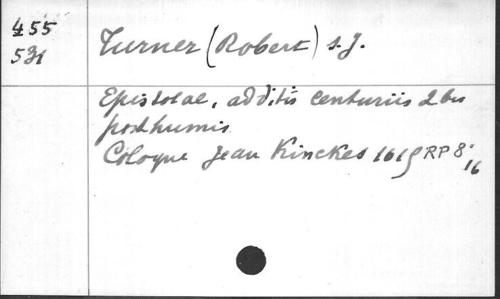 455
531
Turner (Robert) s.J.
Epistolae, additis centuriis 2bus
posthumis
Cologne Jean Kinckes 1615 RP 8º
16